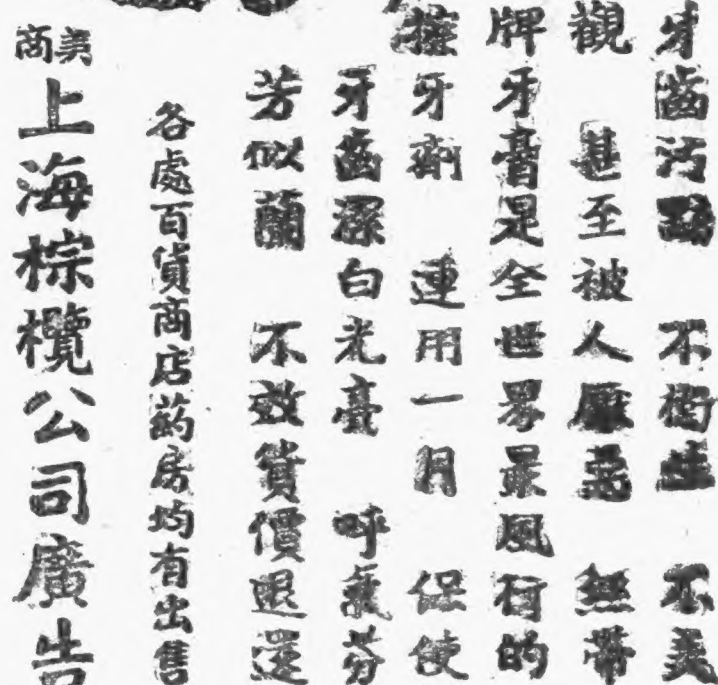 牙齒污點 不衛生 不美
觀 甚至被人厭惡 帶
牌牙膏是全世界最風行的
擦牙劑 連用一月 保使
牙齒潔白光臺 呼氣芬
芳似蘭 不效貨價退還
各處百貨商店葯房均有出售
美商
上海棕欖公司廣告